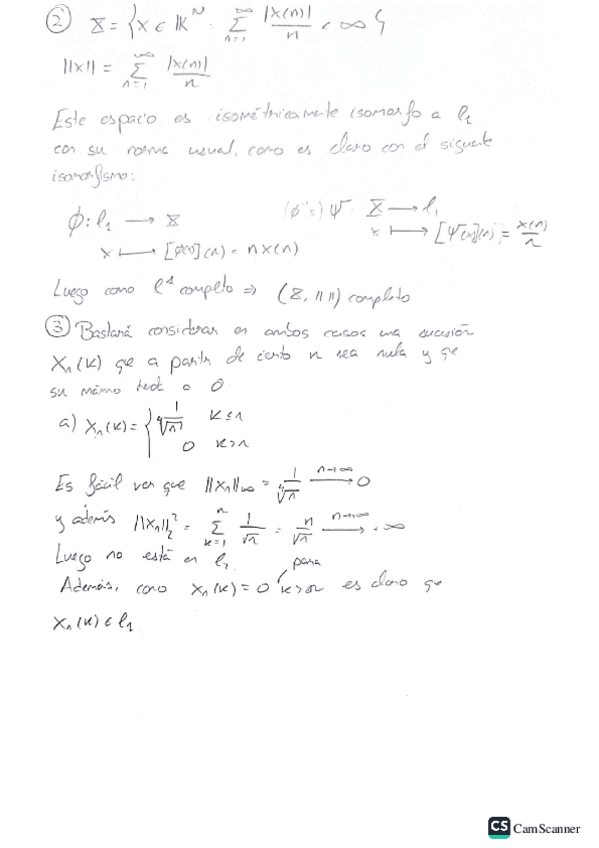 ② X = {x ∈ 𝕂^ℕ : ∑_{n=1}^∞ |x(n)|/n < ∞}
||x|| = ∑_{n=1}^∞ |x(n)|/n
Este espacio es isométricamente isomorfo a l₁
con su norma usual, como es claro con el siguiente
isomorfismo:
ϕ: l₁ → X (ϕ⁻¹=) Ψ: X → l₁
x ↦ [ϕ(x)](n) = n x(n) x ↦ [Ψ(x)](n) = x(n)/n
Luego como l¹ completo ⇒ (X, || ||) completo
③ Bastará considerar en ambos casos una sucesión
Xₙ(k) que a partir de cierto n sea nula y que
su máximo tienda a 0
a) Xₙ(k) = { 1/⁴√n k ≤ n
0 k > n
Es fácil ver que ||Xₙ||∞ = 1/⁴√n →(n→∞) 0
y además ||Xₙ||₂² = ∑_{k=1}^n 1/√n = n/√n →(n→∞) +∞
Luego no está en l₂
Además, como Xₙ(k) = 0 para k>n es claro que
Xₙ(k) ∈ l₁
CS CamScanner